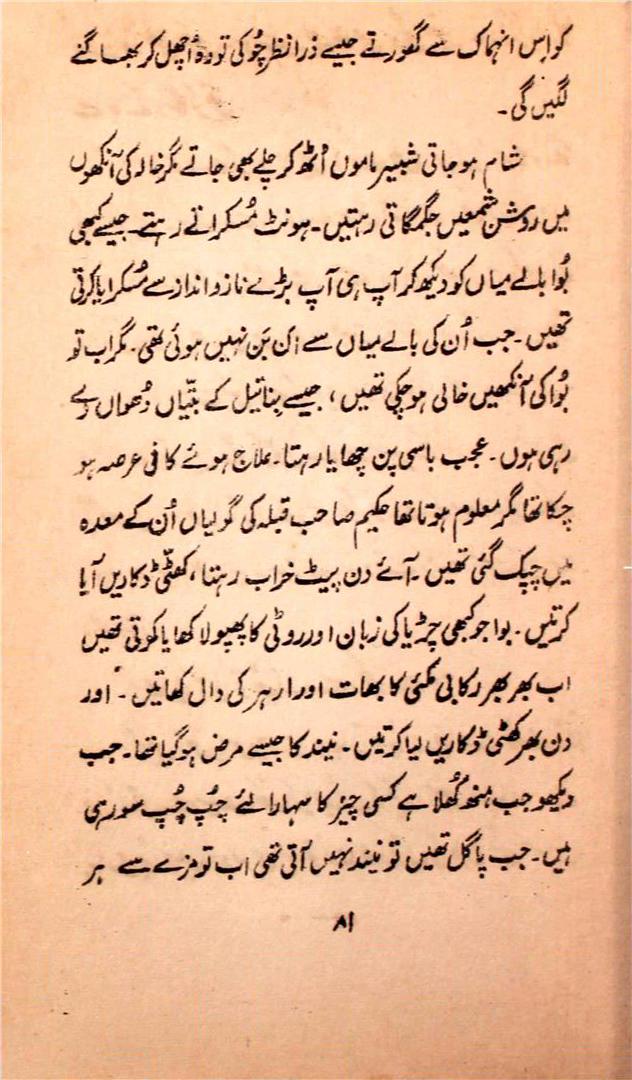 کو اِس انہماک سے گھورتے جیسے ذرا نظر چُوکی تو وہ اُچھل کر بھاگنے
لگیں گی۔
شام ہو جاتی شبیر ماموں اُٹھ کر چلے بھی جاتے مگر خالہ کی آنکھوں
میں روشن شمعیں جگمگاتی رہتیں۔ ہونٹ مُسکراتے رہتے۔ جیسے کبھی
بُوا بالے میاں کو دیکھ کر آپ ہی آپ بڑے ناز و انداز سے مُسکرایا کرتی
تھیں۔ جب اُن کی بالے میاں سے اَن بَن نہیں ہوئی تھی۔ مگر اب تو
بُوا کی آنکھیں خالی ہو چکی تھیں، جیسے بِنا تیل کے بتّیاں دُھواں دے
رہی ہوں۔ عجب باسی پن چھایا رہتا۔ علاج ہوئے کافی عرصہ ہو
چکا تھا مگر معلوم ہوتا تھا حکیم صاحب قبلہ کی گولیاں اُن کے معدہ
میں چپک گئی تھیں۔ آئے دن پیٹ خراب رہتا، کھٹّی ڈکاریں آیا
کرتیں۔ بوا جو کبھی چڑیا کی زبان اور روٹی کا پھپولا کھایا کرتی تھیں
اب بھر بھر رکابی مکئی کا بھات اور ارہر کی دال کھاتیں۔ اور
دن بھر کھٹی ڈکاریں لیا کرتیں۔ نیند کا جیسے مرض ہو گیا تھا۔ جب
دیکھو جب منھ کُھلا ہے کسی چیز کا سہارا لئے چُپ چُپ سو رہی
ہیں۔ جب پاگل تھیں تو نیند نہیں آتی تھی اب تو مزے سے ہر
۸۱